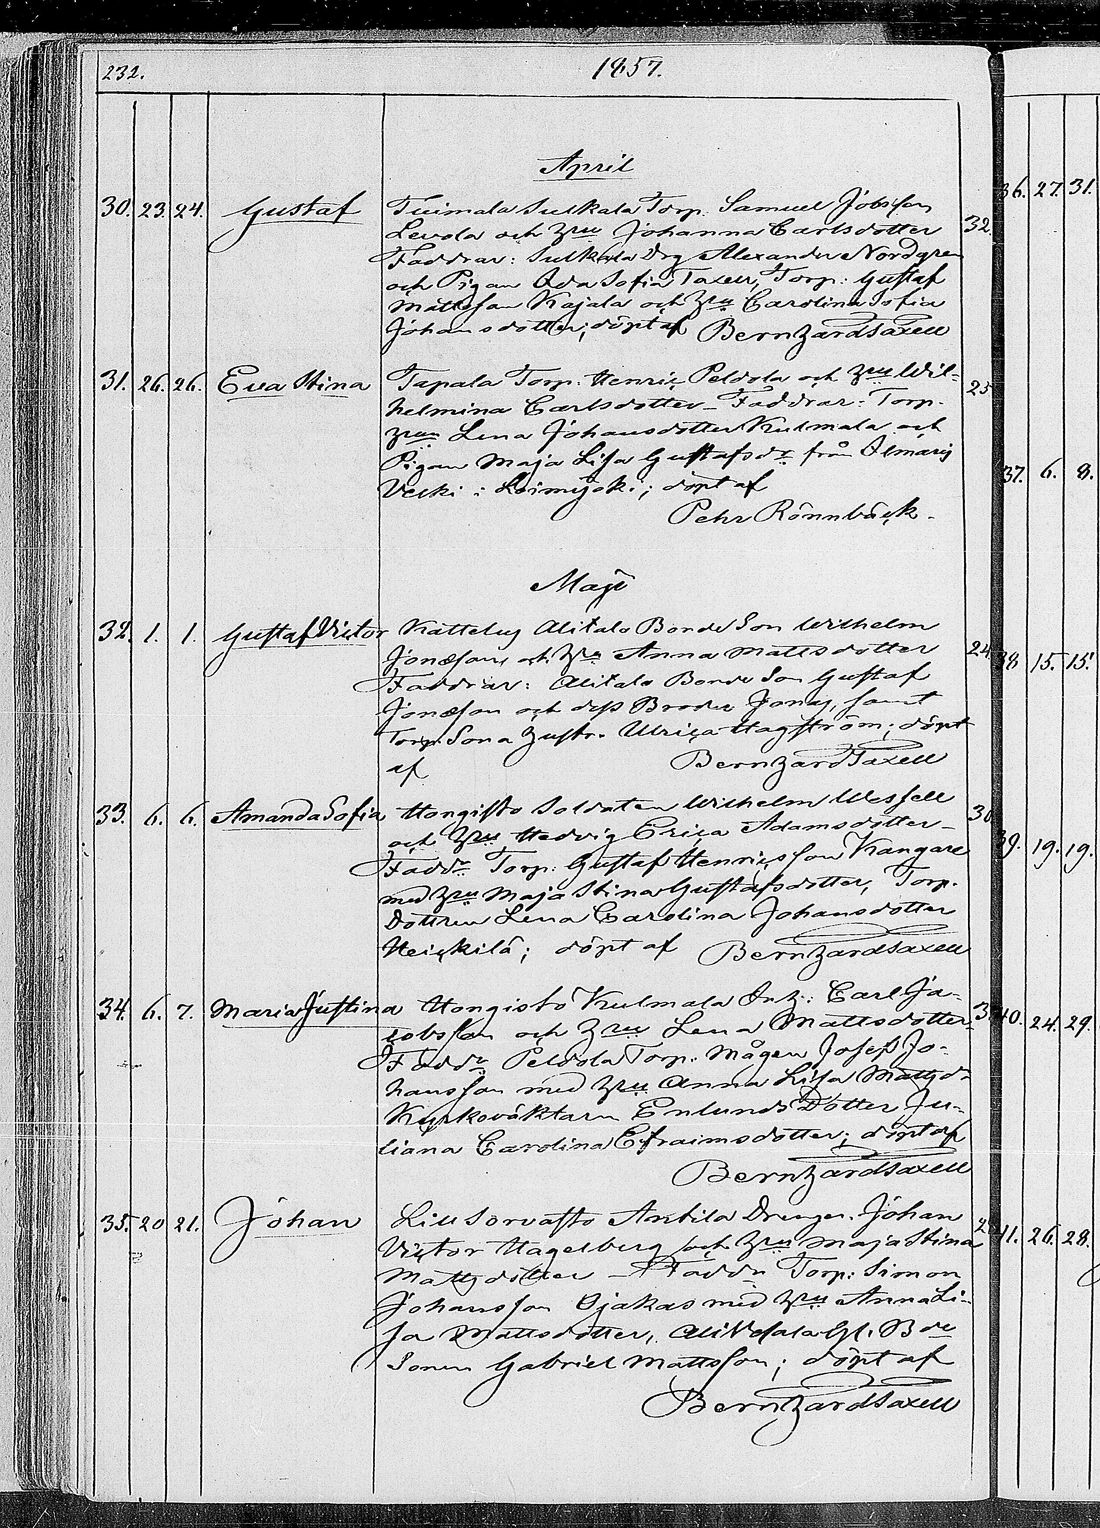 232. 1857.
April
30. 23. 24. Gustaf Tuimala Sulkala Torp. Samuel Jobsson
Levola och Hru Johanna Carlsdotter 32
Faddrar: Sulkala Drg Alexander Nordgren
och Pigan Ida Sofia Taxell, Torp: Gustaf
Mattsson Kajala och Hru Carolina Sofia
Johansdotter; döpt af Bernhard Taxell
31. 26. 26. Eva Stina Tapala Torp: Henric Peldola och Hru Wil- 25
helmina Carlsdotter – Faddrar: Torp.
Hrun Lena Johansdotter Kulmala och
Pigan Maja Lisa Gustafsdr från Ilmaris
Veski i Loimijoki; döpt af
Pehr Rönnbäck.
Maji
32. 1. 1. Gustaf Victor Kattelus Alitalo Bonde Son Wilhelm
Jonæson och Hru Anna Mattsdotter 24
Faddrar: Alitalo Bonde Son Gustaf
Jonæson och dess Broder Jonas, samt
Torp. Sona Hustr. Ulrica Hagström; döpt
af Bernhard Taxell
33. 6. 6. Amanda Sofia Hongisto Soldaten Wilhelm Wessell 30
och Hru Hedvig Erica Adamsdotter –
Faddr Torp: Gustaf Henricsson Kangare
med Hru Maja Stina Gustafsdotter, Torp.
Dottren Lena Carolina Johansdotter
Heickilä; döpt af Bernhard Taxell
34. 6. 7. Maria Justina Hongisto Kulmala Inh: Carl Ja- 3
cobsson och Hru Lena Mattsdotter
Faddr Peldola Torp: Mågen Josef Jo-
hansson med Hru Anna Lisa Mattsdr
Kyrkovaktarn Enlunds Dotter Ju-
liana Carolina Efraimsdotter; döpt af
Bernhard Taxell
35. 20 21. Johan Lill Sorvasto Anttila Drengen Johan 2
Victor Hagelberg och Hru Maja Stina
Mattsdotter – Faddr Torp: Simon
Johansson Ojakas med Hru Anna Li-
sa Mattsdotter, Gl. Bde
Sonen Gabriel Mattsson; döpt af
Bernhard Taxell
36. 27. 31.
37. 6. 8.
38 15. 15.
39. 19. 19.
40. 24. 29.
41. 26. 28.